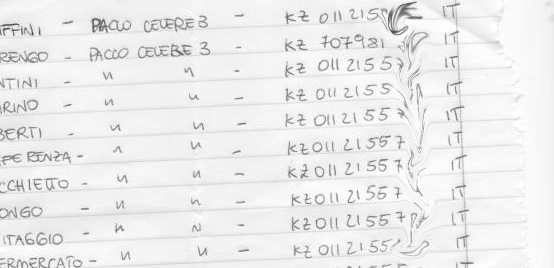 FFINI - PACCO CELERE 3 - KZ 011215 IT
RENGO - PACCO CELERE 3 - KZ 707981 IT
NTINI - " " - KZ 01121557 IT
RINO - " " - KZ 0112155 IT
BERTI - " " - KZ 01121557 IT
PERENZA - " " - KZ 01121557 IT
CCHIETTO - " " - KZ 01121557 IT
ONGO - " " - KZ 01121557 IT
ITAGGIO - " " - KZ 01121557 IT
ERMERCATO - " " - KZ 0112155 IT